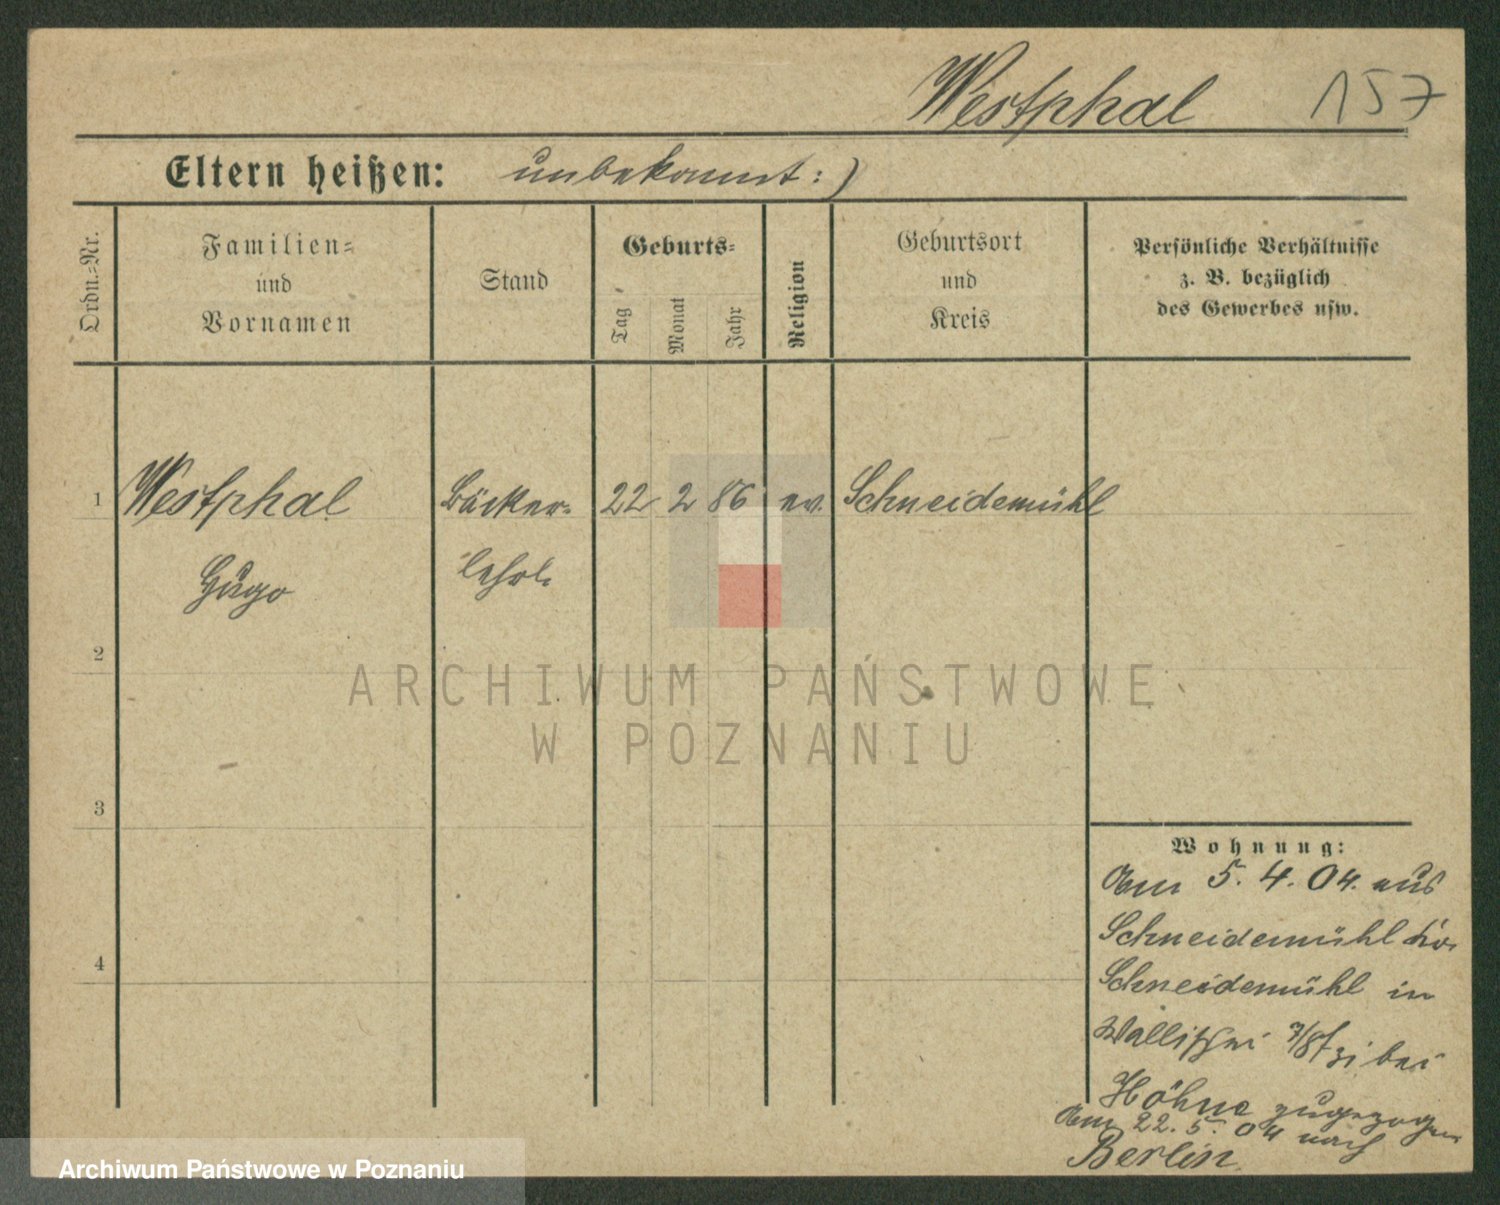 Westphal 157
Eltern heißen: unbekannt :)
Ordn.=Nr.
Familien=
und
Vornamen
Stand
Geburts=
Tag
Monat
Jahr
Religion
Geburtsort
und
Kreis
Persönliche Verhältnisse
z. B. bezüglich
des Gewerbes usw.
1 Westphal Bäcker= 22 2 86 ev. Schneidemühl
Hugo lehrl.
2
ARCHIWUM PAŃSTWOWE
W POZNANIU
3
Wohnung:
Am 5. 4. 04. aus
Schneidemühl
4
Schneidemühl in
Wallischei 7/8 bei
Höhne zugezogen
Am 22. 5. 04 nach
Berlin
Archiwum Państwowe w Poznaniu